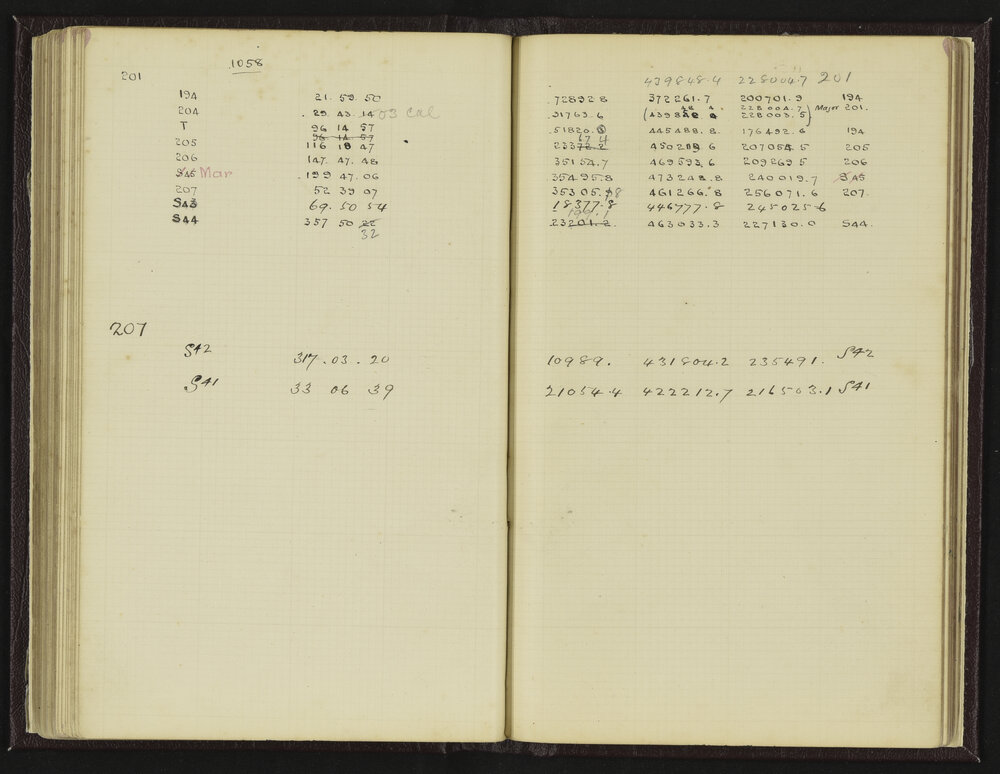 1058
201
194 21. 59. 50
204 29 43. 14 03 Cal
T 96 14 57
96 14 57
205 116 18 47
206 147. 47. 48
S45 Mar 199 47. 06
207 52 39 07
S43 69. 50 54
S44 357 50 22
32
207
S42 317. 03. 20
S41 33 06 39
439848.4 228004.7 201
72892 8 372261.7 200701.9 194
48 4. 228004.7
31763.6 Major 201.
228003.5
51820. 445488.8. 176492.6 194
67 4
23372.2 6 207054.5 205
35154.7 469593.6 209269 5 206
35495.8 473248.8 240019.7 S45
35305. 8 461266.8 256071.6 207.
18377.8 446777.8 245025 6
199.1
23201.2. 463033.3 227130.0 S44.
10989. 431804.2 235491. S42
21054.4 422212.7 216503.1 S41